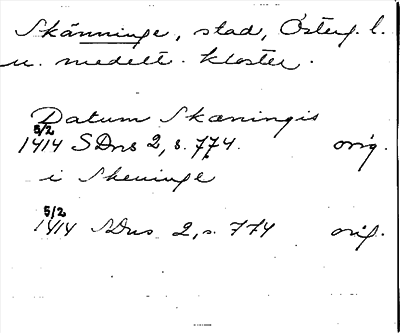 Skänninge, stad, Österg. l.
u. medelt. kloster.
Datum Skæningis
5/2
1414 SDns 2, s. 774. orig.
i Skeninge
5/2
1414 SDns 2, s. 774 orig.